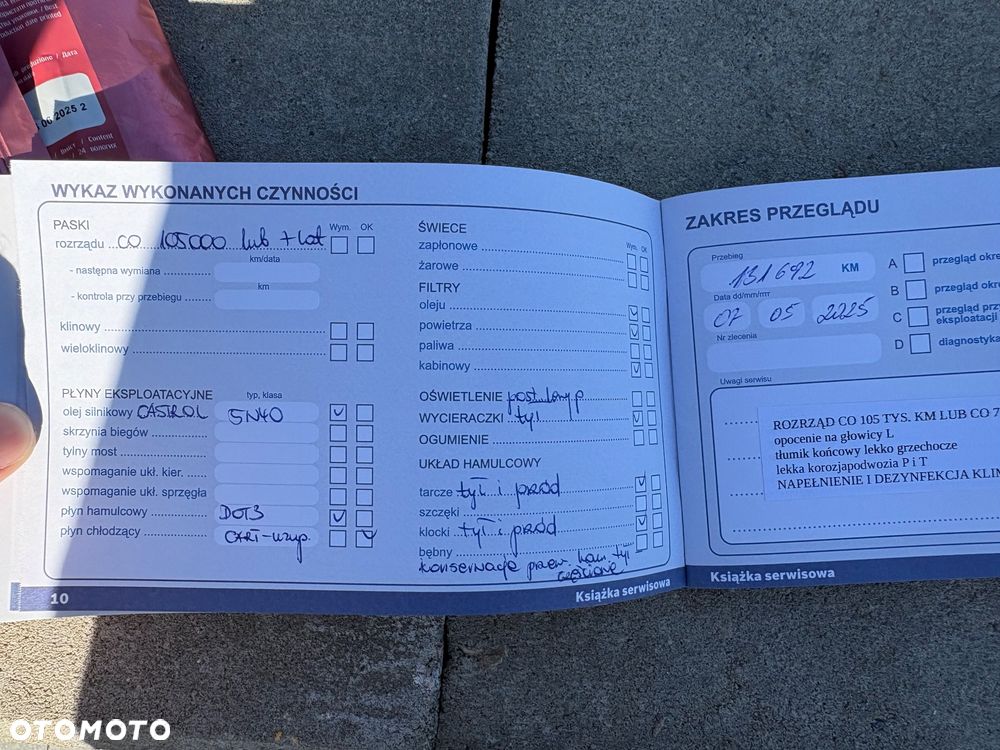 06 2025 2
WYKAZ WYKONANYCH CZYNNOŚCI
PASKI
Wym. OK
rozrządu ... CO 105000 lub 7 lat
km/data
- następna wymiana
km
- kontrola przy przebiegu
klinowy
wieloklinowy
PŁYNY EKSPLOATACYJNE
typ, klasa
olej silnikowy CASTROL 5N40
skrzynia biegów
tylny most
wspomaganie ukł. kier.
wspomaganie ukł. sprzęgła
płyn hamulcowy DOT3
płyn chłodzący
ŚWIECE
Wym. OK
zapłonowe
żarowe
FILTRY
oleju
powietrza
paliwa
kabinowy
OŚWIETLENIE
WYCIERACZKI tył
OGUMIENIE
UKŁAD HAMULCOWY
tarcze tył i przód
szczęki
klocki tył i przód
bębny
konserwacje przew. ham. tył
10
Książka serwisowa
ZAKRES PRZEGLĄDU
Przebieg
131692 KM
Data dd/mm/rrrr
07 05 2025
Nr zlecenia
A przegląd okre
B przegląd okre
C przegląd prz
eksploatacji
D diagnostyka
Uwagi serwisu
ROZRZĄD CO 105 TYS. KM LUB CO 7
opocenie na głowicy L
tłumik końcowy lekko grzechocze
lekka korozjapodwozia P i T
NAPEŁNIENIE I DEZYNFEKCJA KLIM
Książka serwisowa
OTOMOTO